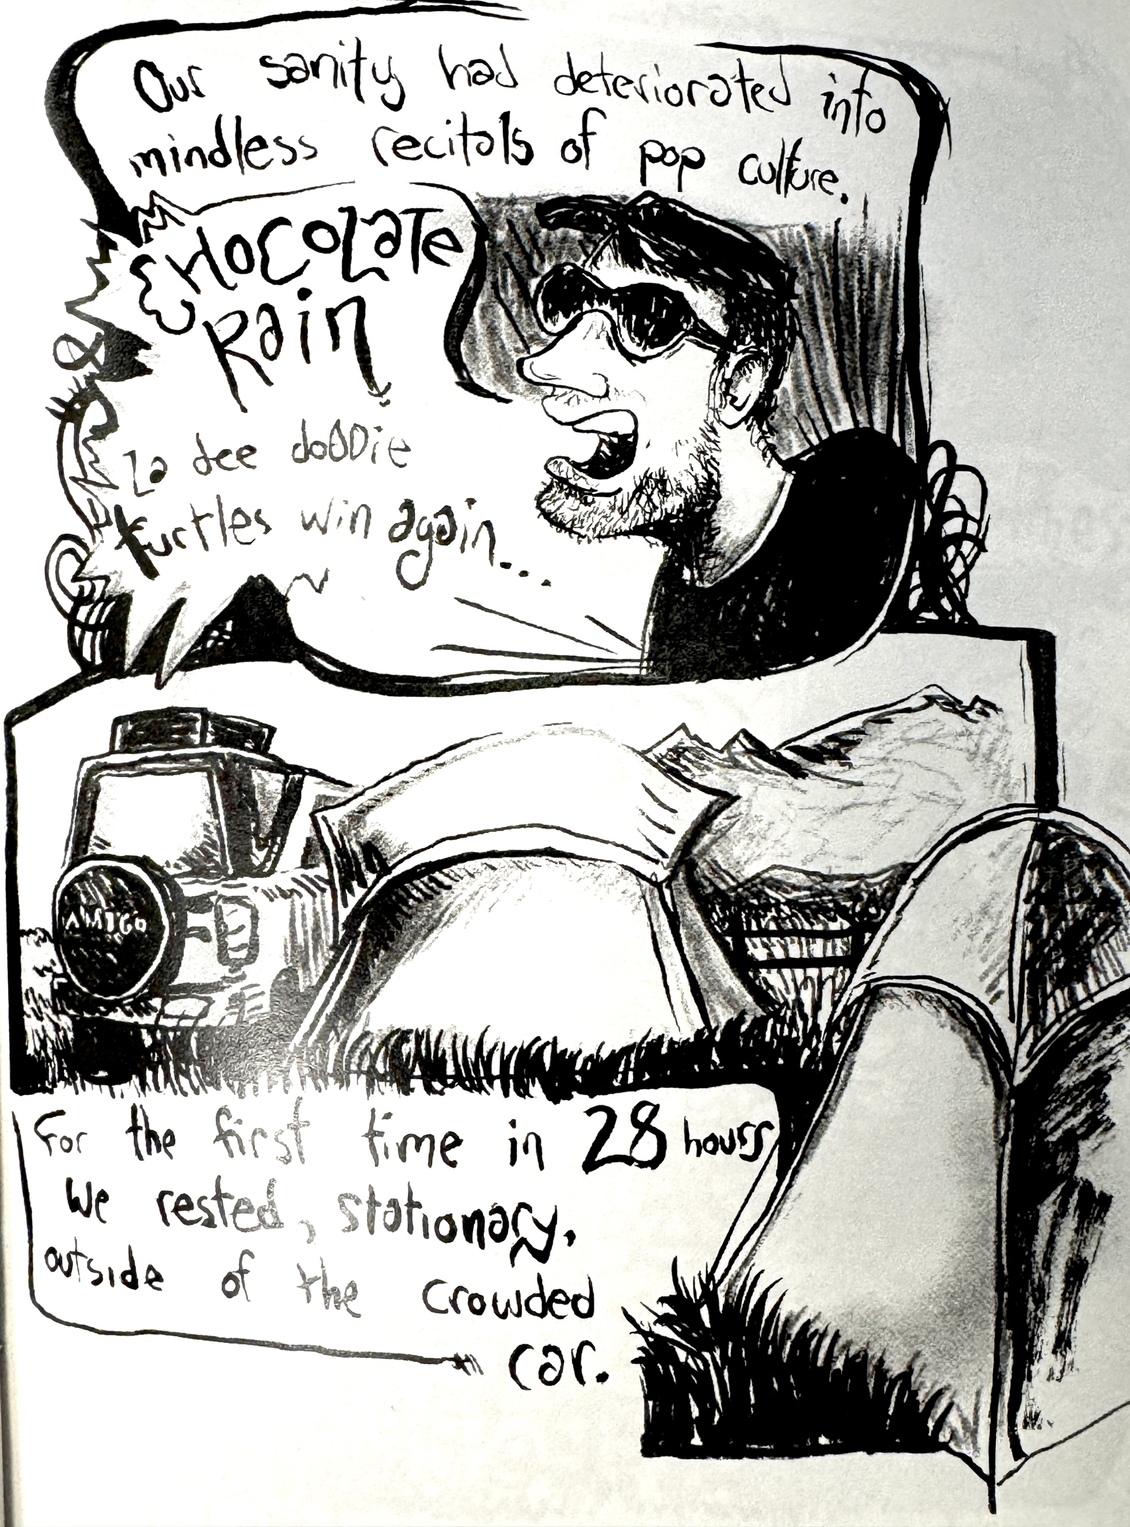 Our sanity had deteriorated into
mindless recitals of pop culture.
CHOCOLATE
Rain
La dee dooDie
turtles win again...
AMIGO
For the first time in 28 hours
We rested, stationary,
outside of the crowded
car.